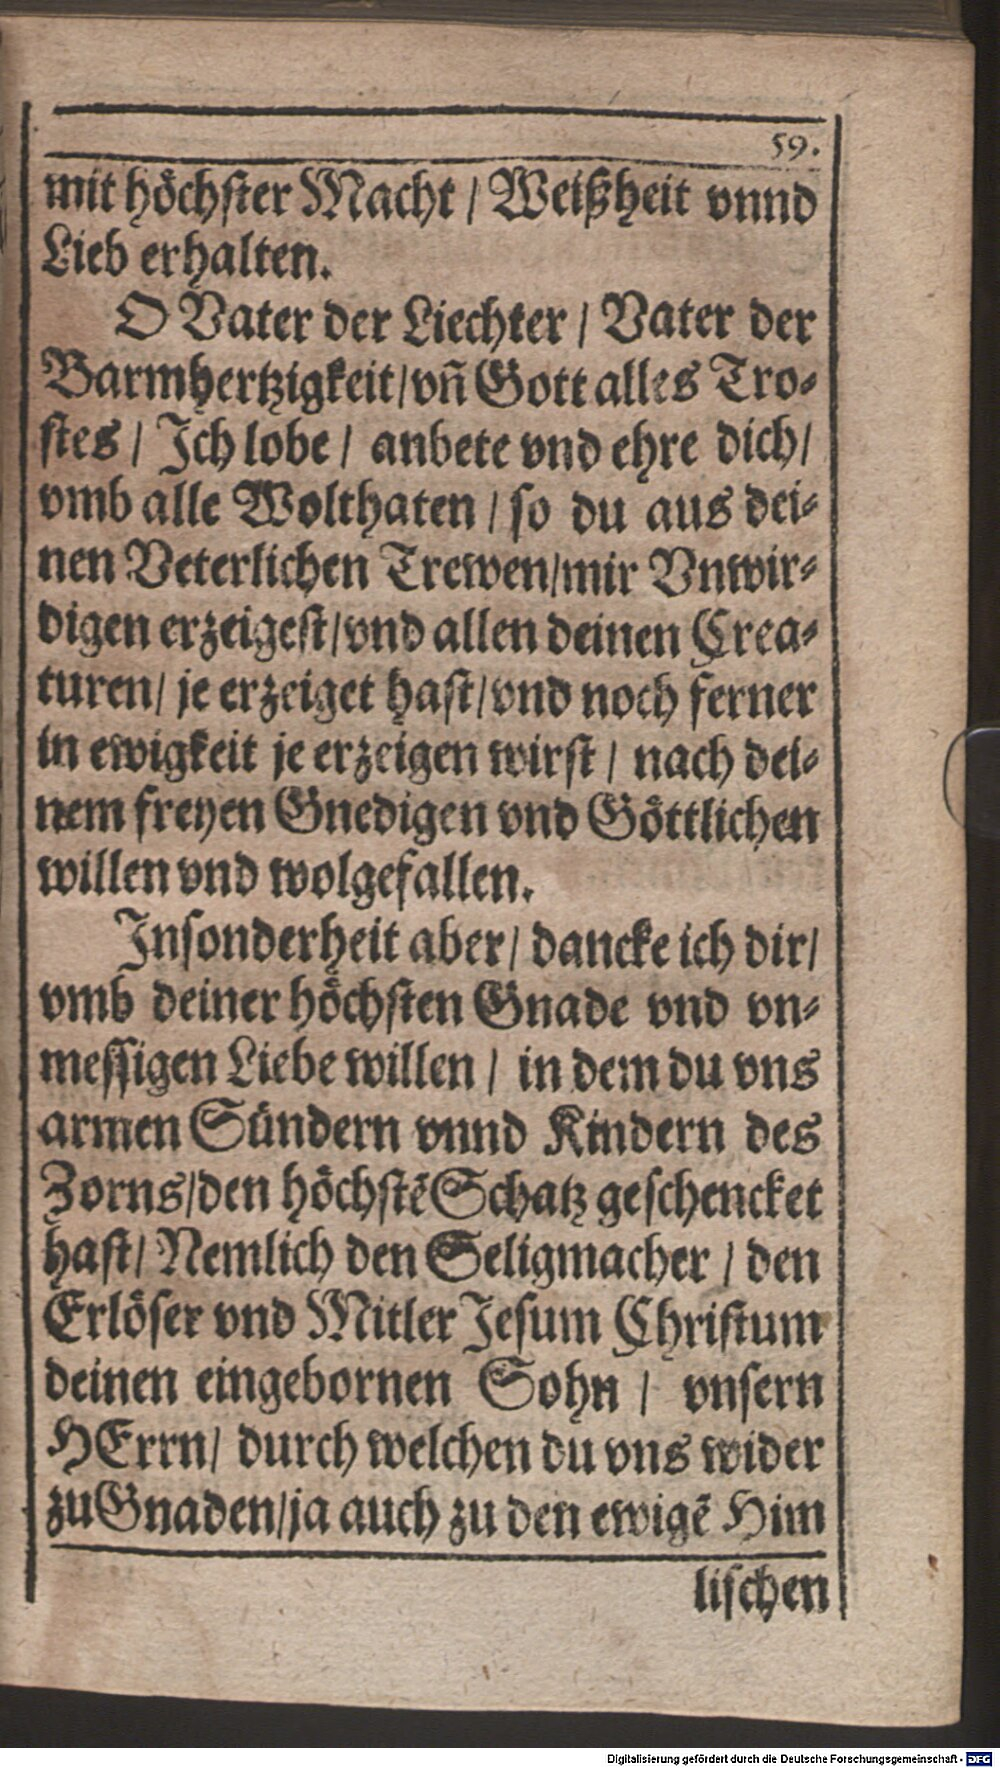 59.
mit höchster Macht / Weißheit vnnd
Lieb erhalten.
O Vater der Liechter / Vater der
Barmhertzigkeit/ vñ Gott alles Tro-
stes / Ich lobe / anbete vnd ehre dich/
vmb alle Wolthaten / so du aus dei-
nen Veterlichen Trewen/mir Vnwir-
digen erzeigest/vnd allen deinen Crea-
turen/ je erzeiget hast/vnd noch ferner
in ewigkeit je erzeigen wirst / nach dei-
nem freyen Gnedigen vnd Göttlichen
willen vnd wolgefallen.
Insonderheit aber/ dancke ich dir/
vmb deiner höchsten Gnade vnd vn-
messigen Liebe willen / in dem du vns
armen Sündern vnnd Kindern des
Zorns/den höchstē Schatz geschencket
hast/ Nemlich den Seligmacher / den
Erlöser vnd Mitler Jesum Christum
deinen eingebornen Sohn / vnsern
HErrn/ durch welchen du vns wider
zu Gnaden/ja auch zu den ewigē Him
lischen
Digitalisierung gefördert durch die Deutsche Forschungsgemeinschaft - DFG